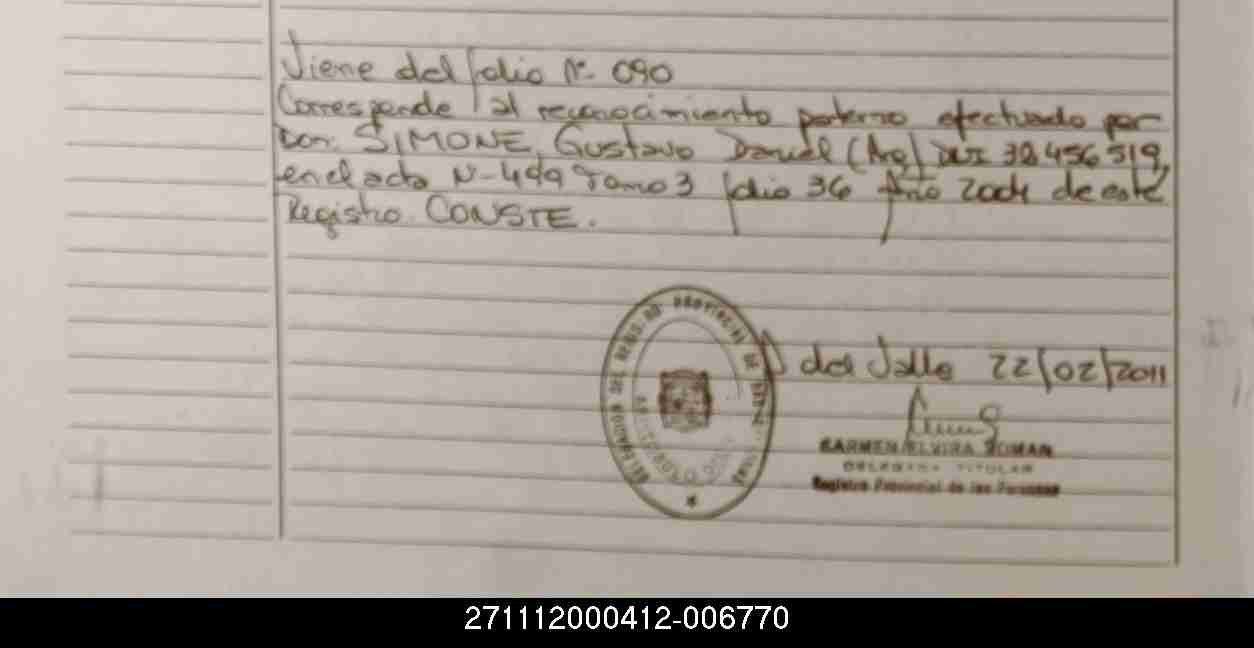 Viene del folio Nº 090
Corresponde al reconocimiento paterno efectuado por
Don. SIMONE, Gustavo Daniel (Arg) DNI 38.456.519,
en el acta Nº 499 Tomo 3 folio 36 Año 2004 de este
Registro. CONSTE.
DELEGACION DEL REGISTRO PROVINCIAL DE
del Valle 22/02/2011
CARMEN ELVIRA ROMAN
DELEGADA TITULAR
Registro Provincial de las Personas
271112000412-006770